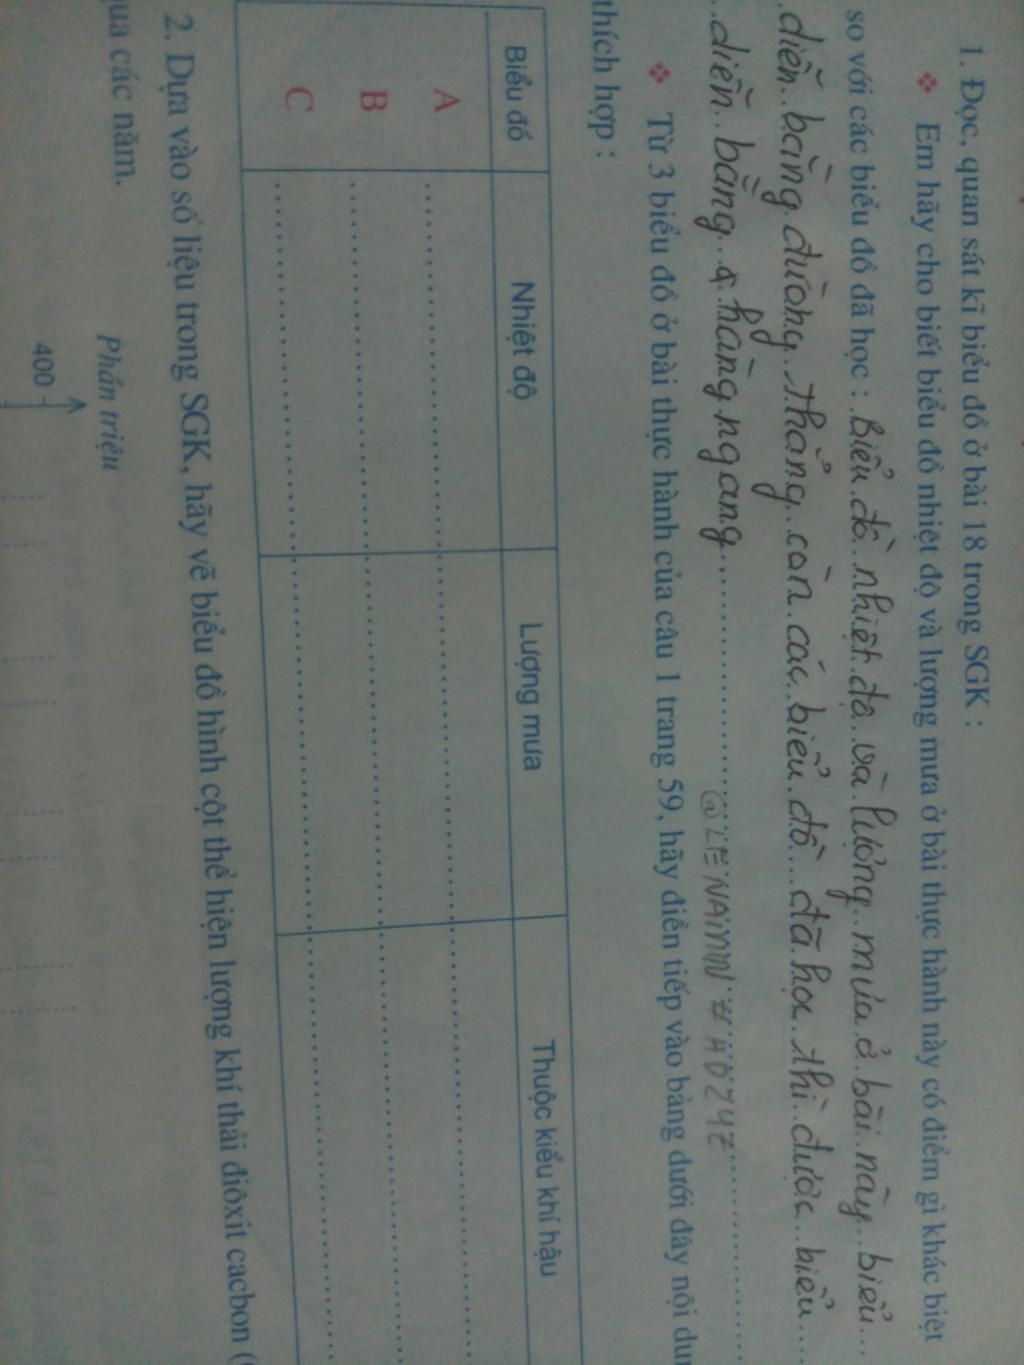 1. Đọc, quan sát kĩ biểu đồ ở bài 18 trong SGK :
❖ Em hãy cho biết biểu đồ nhiệt độ và lượng mưa ở bài thực hành này có điểm gì khác biệt
so với các biểu đồ đã học : Biểu đồ nhiệt độ và lượng mưa ở bài này biểu
diễn bằng đường thẳng còn các biểu đồ đã học thì được biểu
diễn bằng hàng ngang
@LENAIMIN #AD247
❖ Từ 3 biểu đồ ở bài thực hành của câu 1 trang 59, hãy điền tiếp vào bảng dưới đây nội
thích hợp :
Biểu đồ Nhiệt độ Lượng mưa Thuộc kiểu khí hậu
A
B
C
2. Dựa vào số liệu trong SGK, hãy vẽ biểu đồ hình cột thể hiện lượng khí thải điôxit cacbon
qua các năm.
Phần triệu
400